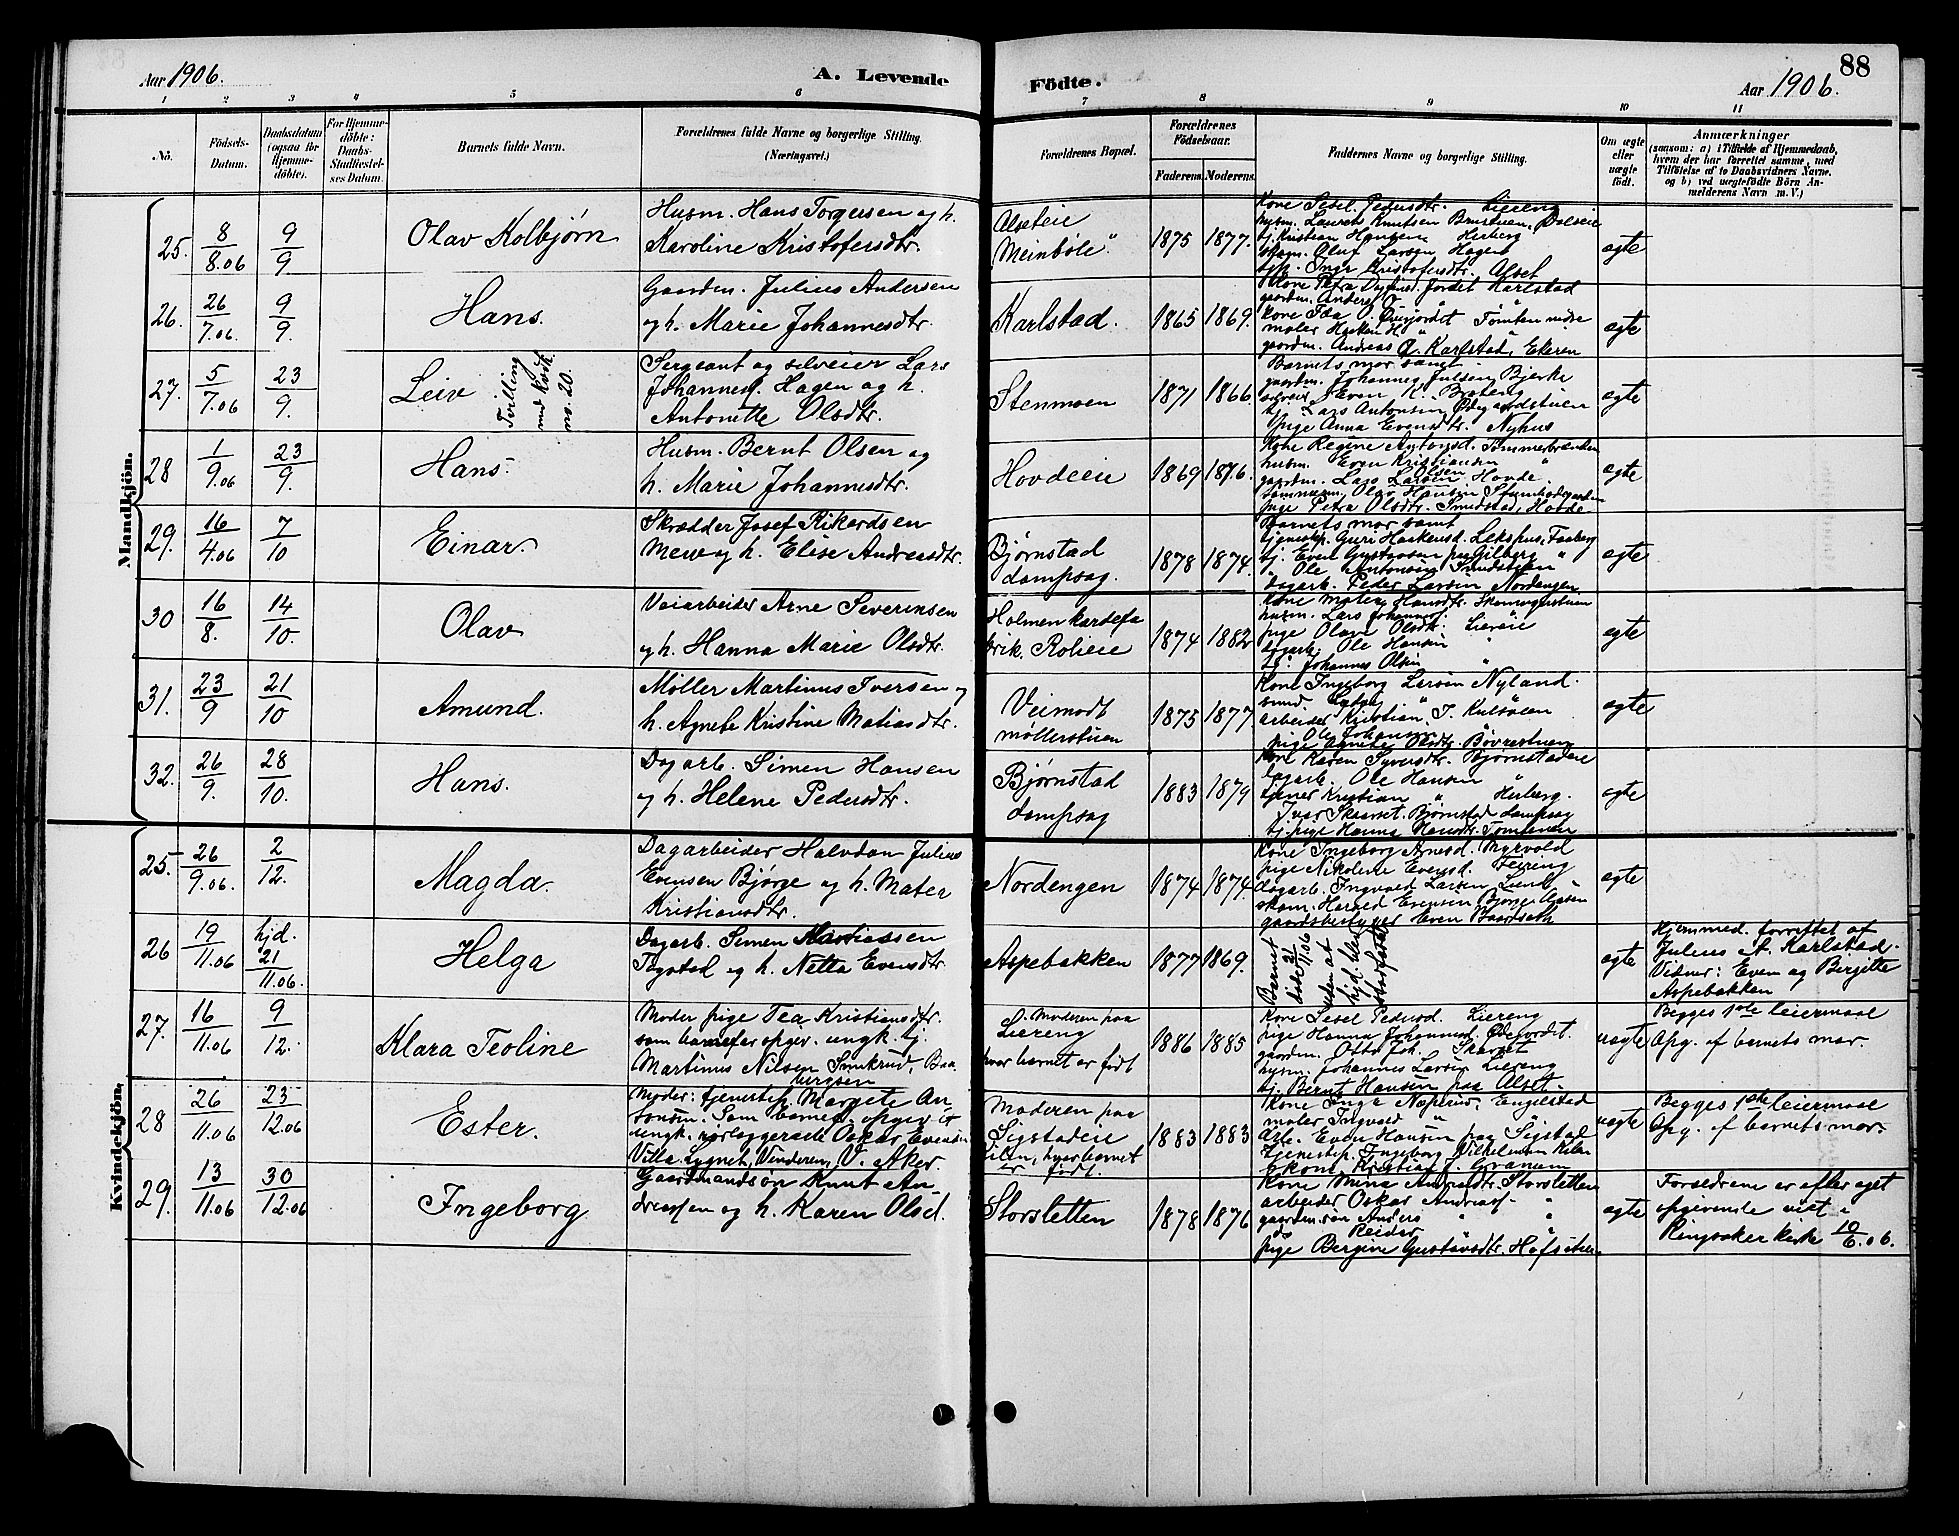 88
Aar 1906.
A. Levende
Födte.
Aar 1906.
1 2 3 4 5 6 7 8 9 10 11
No.
Födsels-
Datum.
Daabsdatum
(ogsaa for
Hjemme-
döbte).
For Hjemme-
döbte:
Daabs-
Stadfæstel-
ses Datum.
Barnets fulde Navn.
Forældrenes fulde Navne og borgerlige Stilling.
(Næringsvei.)
Forældrenes Bopæl.
Forældrenes
Födselsaar.
Faderens. Moderens.
Faddernes Navne og borgerlige Stilling.
Om ægte
eller
uægte
født.
Anmærkninger
(saasom: a) i Tilfælde af Hjemmedaab,
hvem der har forrettet samme, med
Tilföielse af to Daabsvidners Navne,
og b) ved uægtefödte Börn An-
melderens Navn m. V.)
Mandkjön.
25. 8/8.06 9/9
Olav Kolbjørn
Husm. Hans Torgersen og h.
Karoline Kristofersdtr.
Alseteie
"Meinbøle"
1875 1877.
Kone Sesel Pedersdtr. Liereng
husm. Laurits Knutsen Brustuen
tj. Kristian Hansen Herberg
Oluf Larsen Hagen
Inga Kristofersdtr. Alset
ægte
26. 26/7.06 9/9.
Hans.
Gaardm. Julius Andersen
og h. Marie Johannesdtr.
Karlstad.
1865 1869.
Kone Petra Jordet Karlstad
gaardm. Anders O.
Øverjordet Tomten nedre
gaardm. Andreas O. Karlstad, Ekeren
ægte
27. 5/7.06 23/9.
Leiv
Tvilling
med Kvdk.
no. 20.
Sergeant og selveier Lars
Johannes. Hagen og h.
Antonette Olsdtr.
Stenmoen
1871 1866.
Barnets mor samt
gaardm. Johannes Julsen Bjerke
selveier Even K. Brateng
tj. Lars Antonsen Ødegaardstuen
Pige Anna Evensdtr. Nyhus
ægte
28 1/9.06 23/9.
Hans.
Husm. Bernt Olsen og
h. Marie Johannesdtr.
Hovdeeie
1869 1876.
Kone Regine Antonsd.
husm. Even Kristiansen "
gaardm. Lars Olsen Hovde.
Olav Hansen
Pige Petra Olsdtr. Smedstad, Hovde
ægte
29. 16/4.06 7/10
Einar.
Skrædder Josef Rikardsen
Meve og h. Elise Andreasdtr.
Bjørnstad
dampsag.
1878 1874.
Barnets mor samt
Guri Haakensd. Lekshus, Faaberg
tj. Even Gustavsen paa Gilberg
" Ole Antonsen Smedstuen
dagarb. Peder Larsen Nordengen
ægte
30 16/8. 14/10.
Olav
Veiarbeider Arne Severinsen
og h. Hanna Marie Olsdtr.
Holmen kardefa
brik. Roheie
1874 1882
Kone Mater Hansdtr.
husm. Lars Johannes.
pige Olava Olsdtr. Liereie
dagarb. Ole Hansen "
Johannes Olsen "
ægte
31. 23/9 21/10
Amund.
Møller Martinus Iversen og
h. Agnete Kristine Matiasdtr.
Veimodt
møllerstuen
1875 1877
Kone Ingeborg Larsen Nyland.
smed "
arbeider Kristian J. Kulsølen
Ole Johansen "
pige Agnete Olsdtr. Bøverstuen
ægte
32. 26/9. 28/10.
Hans.
Dagarb. Simen Hansen
og h. Helene Pedersdtr.
Bjørnstad
dampsag
1883 1879
Kone Karen Syversdtr. Bjørnstadeie
dagarb. Ole Hansen "
tjener Kristian " Herberg.
Ivar Skarset. Bjørnstad dampsag
tj. pige Hanna Hansdtr. Tomlenen
ægte
Kvindekjön.
25. 26/9.06. 2/12.
Magda.
Dagarbeider Halvdan Julius
Evensen Bjørge og h. Mater
Kristiansdtr.
Nordengen
1874 1874.
Kone Ingeborg Arnesd. Myrvold
pige Nikoline Evensd. Feiring
dagarb. Ingvald Larsen Lund
skom. Harald Evensen Bjørge
gaardsbestyrer Even Baardseth
ægte
26 19/11.06 hjd. 21/11.06.
Helga
Dagarb. Simen Mathiassen
Bystad og h. Netta Evensdtr
Aspebakken
1877 1869.
Barnet
døde 21/11.06
uden at
hjd. blev
stadfæstet
ægte
Hjemmed. forrettet af
Julius A. Karlstad.
Vidner: Even og Birgitte
Aspebakken
27. 16/11.06 9/12.
Klara Teoline
Moder pige Tea Kristiansdtr.
som barnefar opgiv. ungk. tj.
Martinus Nilsen Smikrud,
Moderen paa
Liereng
hvor barnet er født
1886 1885
Kone Sesel Pedersd. Liereng
pige Hanna Johannesd. Ødejordet.
gaardm. Otto Joh. Skarset
husm. Johannes Larsen Liereng
tj. Bernt Hansen paa Alset.
uægte
Begges 1ste leiermaal
Opg. af barnets mor.
28 26/11.06 23/12.06
Ester.
Moder: tjenestep. Margete An
tonsen. Som barnef. opgiv. er
ungk. rørlæggersvend Oskar Evensen
Villa Lygnet, Vinderen, V. Aker.
Moderen paa
Sigstadeie
Lien, hvor barnet
er født.
1883 1883
Kone Inga Næperud, Engelstad
maler Ingvald " "
Arb. Even Hansen paa Sigstad
Tjenestep. Ingeborg Vilhelmsen
Kristian J. Granum
uægte
Begges 1ste leiermaal
Opg. af barnets mor.
29. 13/11.06 30/12.06
Ingeborg
Gaardmandsøn Knut An-
dreassen og h. Karen Olsd.
Storsletten
1878 1876
Kone Mina Andreasdtr. Storsletten
arbeider Oskar Andreas. "
gaardm.søn Anders " "
do Reidar
pige Bergine Gustavsdtr. Hofstuen
ægte
Forældrene er efter eget
opgivende viet i
Ringsaker kirke 10/6.06.